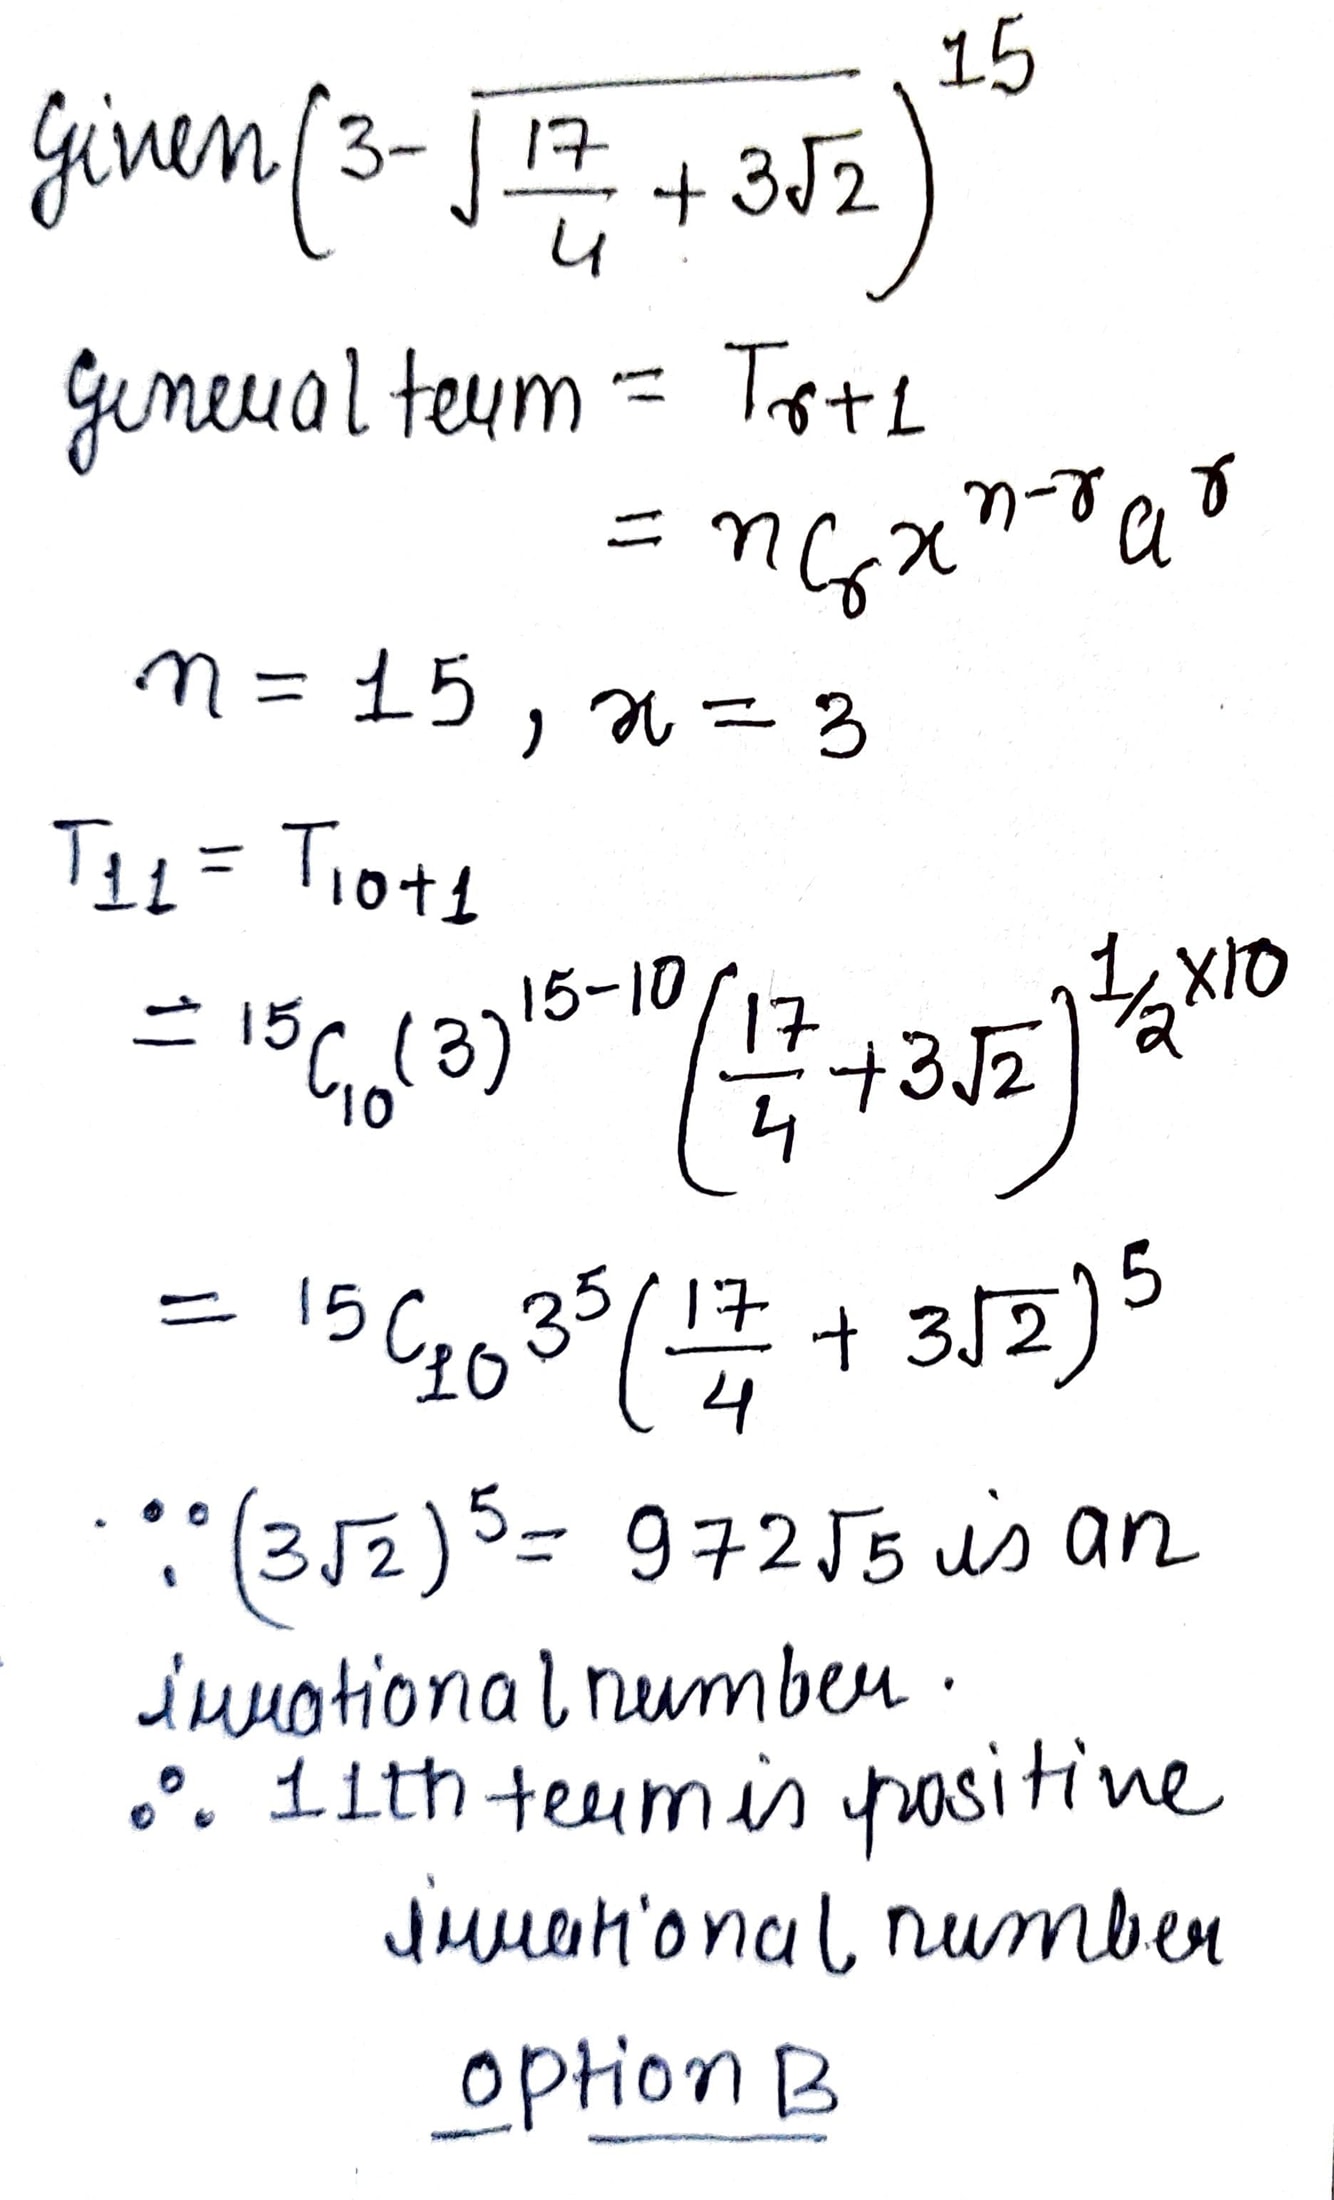 Given (3-√(17/4 + 3√2))^15
general term = T_r+1
= nC_r x^n-r a^r
n = 15, x = 3
T_11 = T_10+1
= 15C_10 (3)^15-10 (17/4 + 3√2)^1/2 ×10
= 15C_10 3^5 (17/4 + 3√2)^5
∵ (3√2)^5 = 972√5 is an
irrational number.
∴ 11th term is positive
irrational number
option B